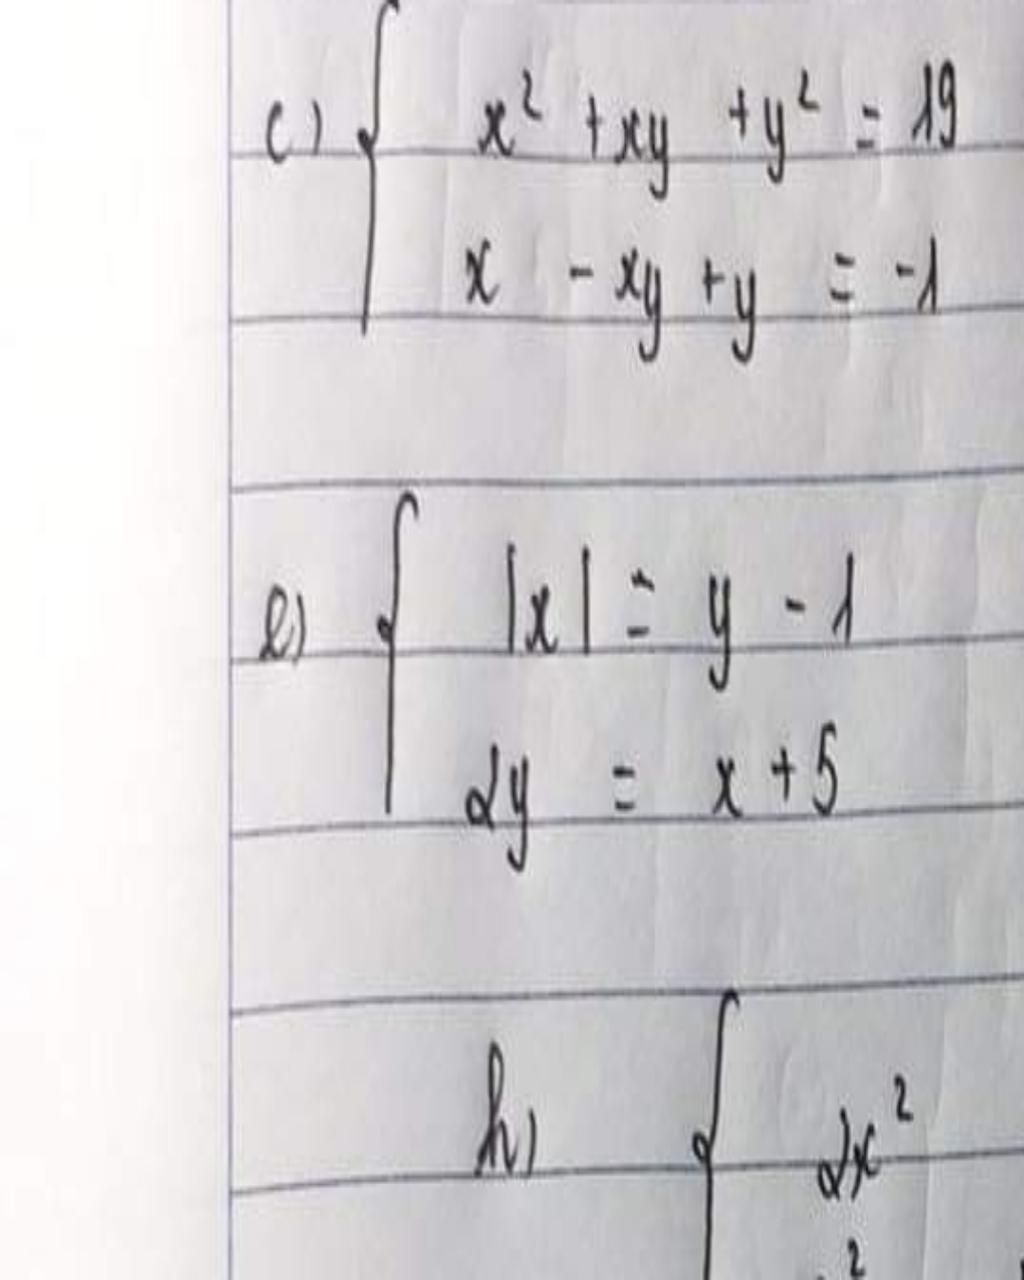 c) x² + xy + y² = 19
x - xy + y = -1
e) |x| = y - 1
2y = x + 5
h) 2x²